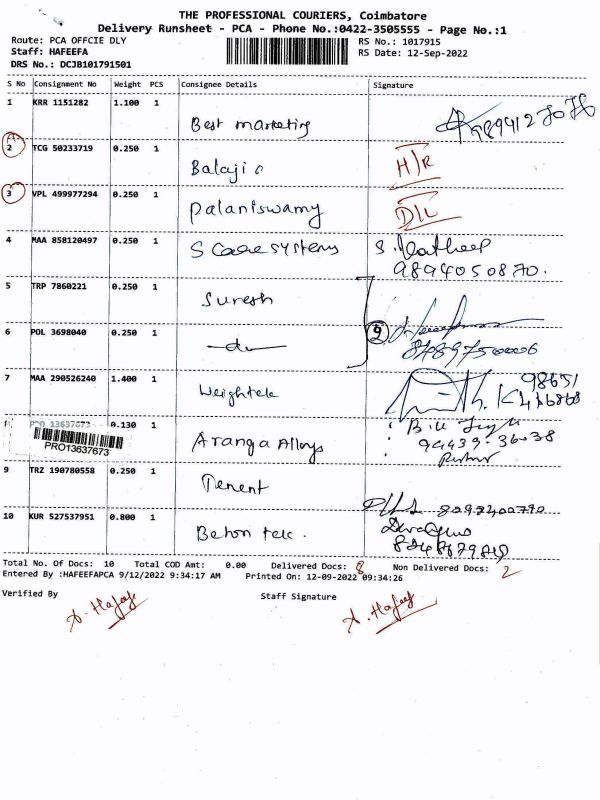 THE PROFESSIONAL COURIERS, Coimbatore
Delivery Runsheet - PCA - Phone No.:0422-3505555 - Page No.:1
Route: PCA OFFCIE DLY
RS No.: 1017915
Staff: HAFEEFA
RS Date: 12-Sep-2022
DRS No.: DCJB101791501
S No Consignment No Weight PCS Consignee Details Signature
1 KRR 1151282 1.100 1
Best marketing
2 TCG 50233719 0.250 1
Balaji H/R
3 VPL 499977294 0.250 1
Palaniswamy D/L
4 MAA 858120497 0.250 1
S Care systems S.
9894050870.
5 TRP 7860221 0.250 1
Suresh
6 POL 3698040 0.250 1
2
-do-
8489750006
7 MAA 290526240 1.400 1
Weightek 98651
PRO 13637673 0.130 1
PRO13637673
Aranga Alloys
94439-36038
9 TRZ 190780558 0.250 1
Tenent
10 KUR 527537951 0.800 1
Beton tek.
Total No. Of Docs: 10 Total COD Amt: 0.00 Delivered Docs: 8 Non Delivered Docs: 2
Entered By :HAFEEFAPCA 9/12/2022 9:34:17 AM Printed On: 12-09-2022 09:34:26
Verified By Staff Signature
A. Hafeef A. Hafeef